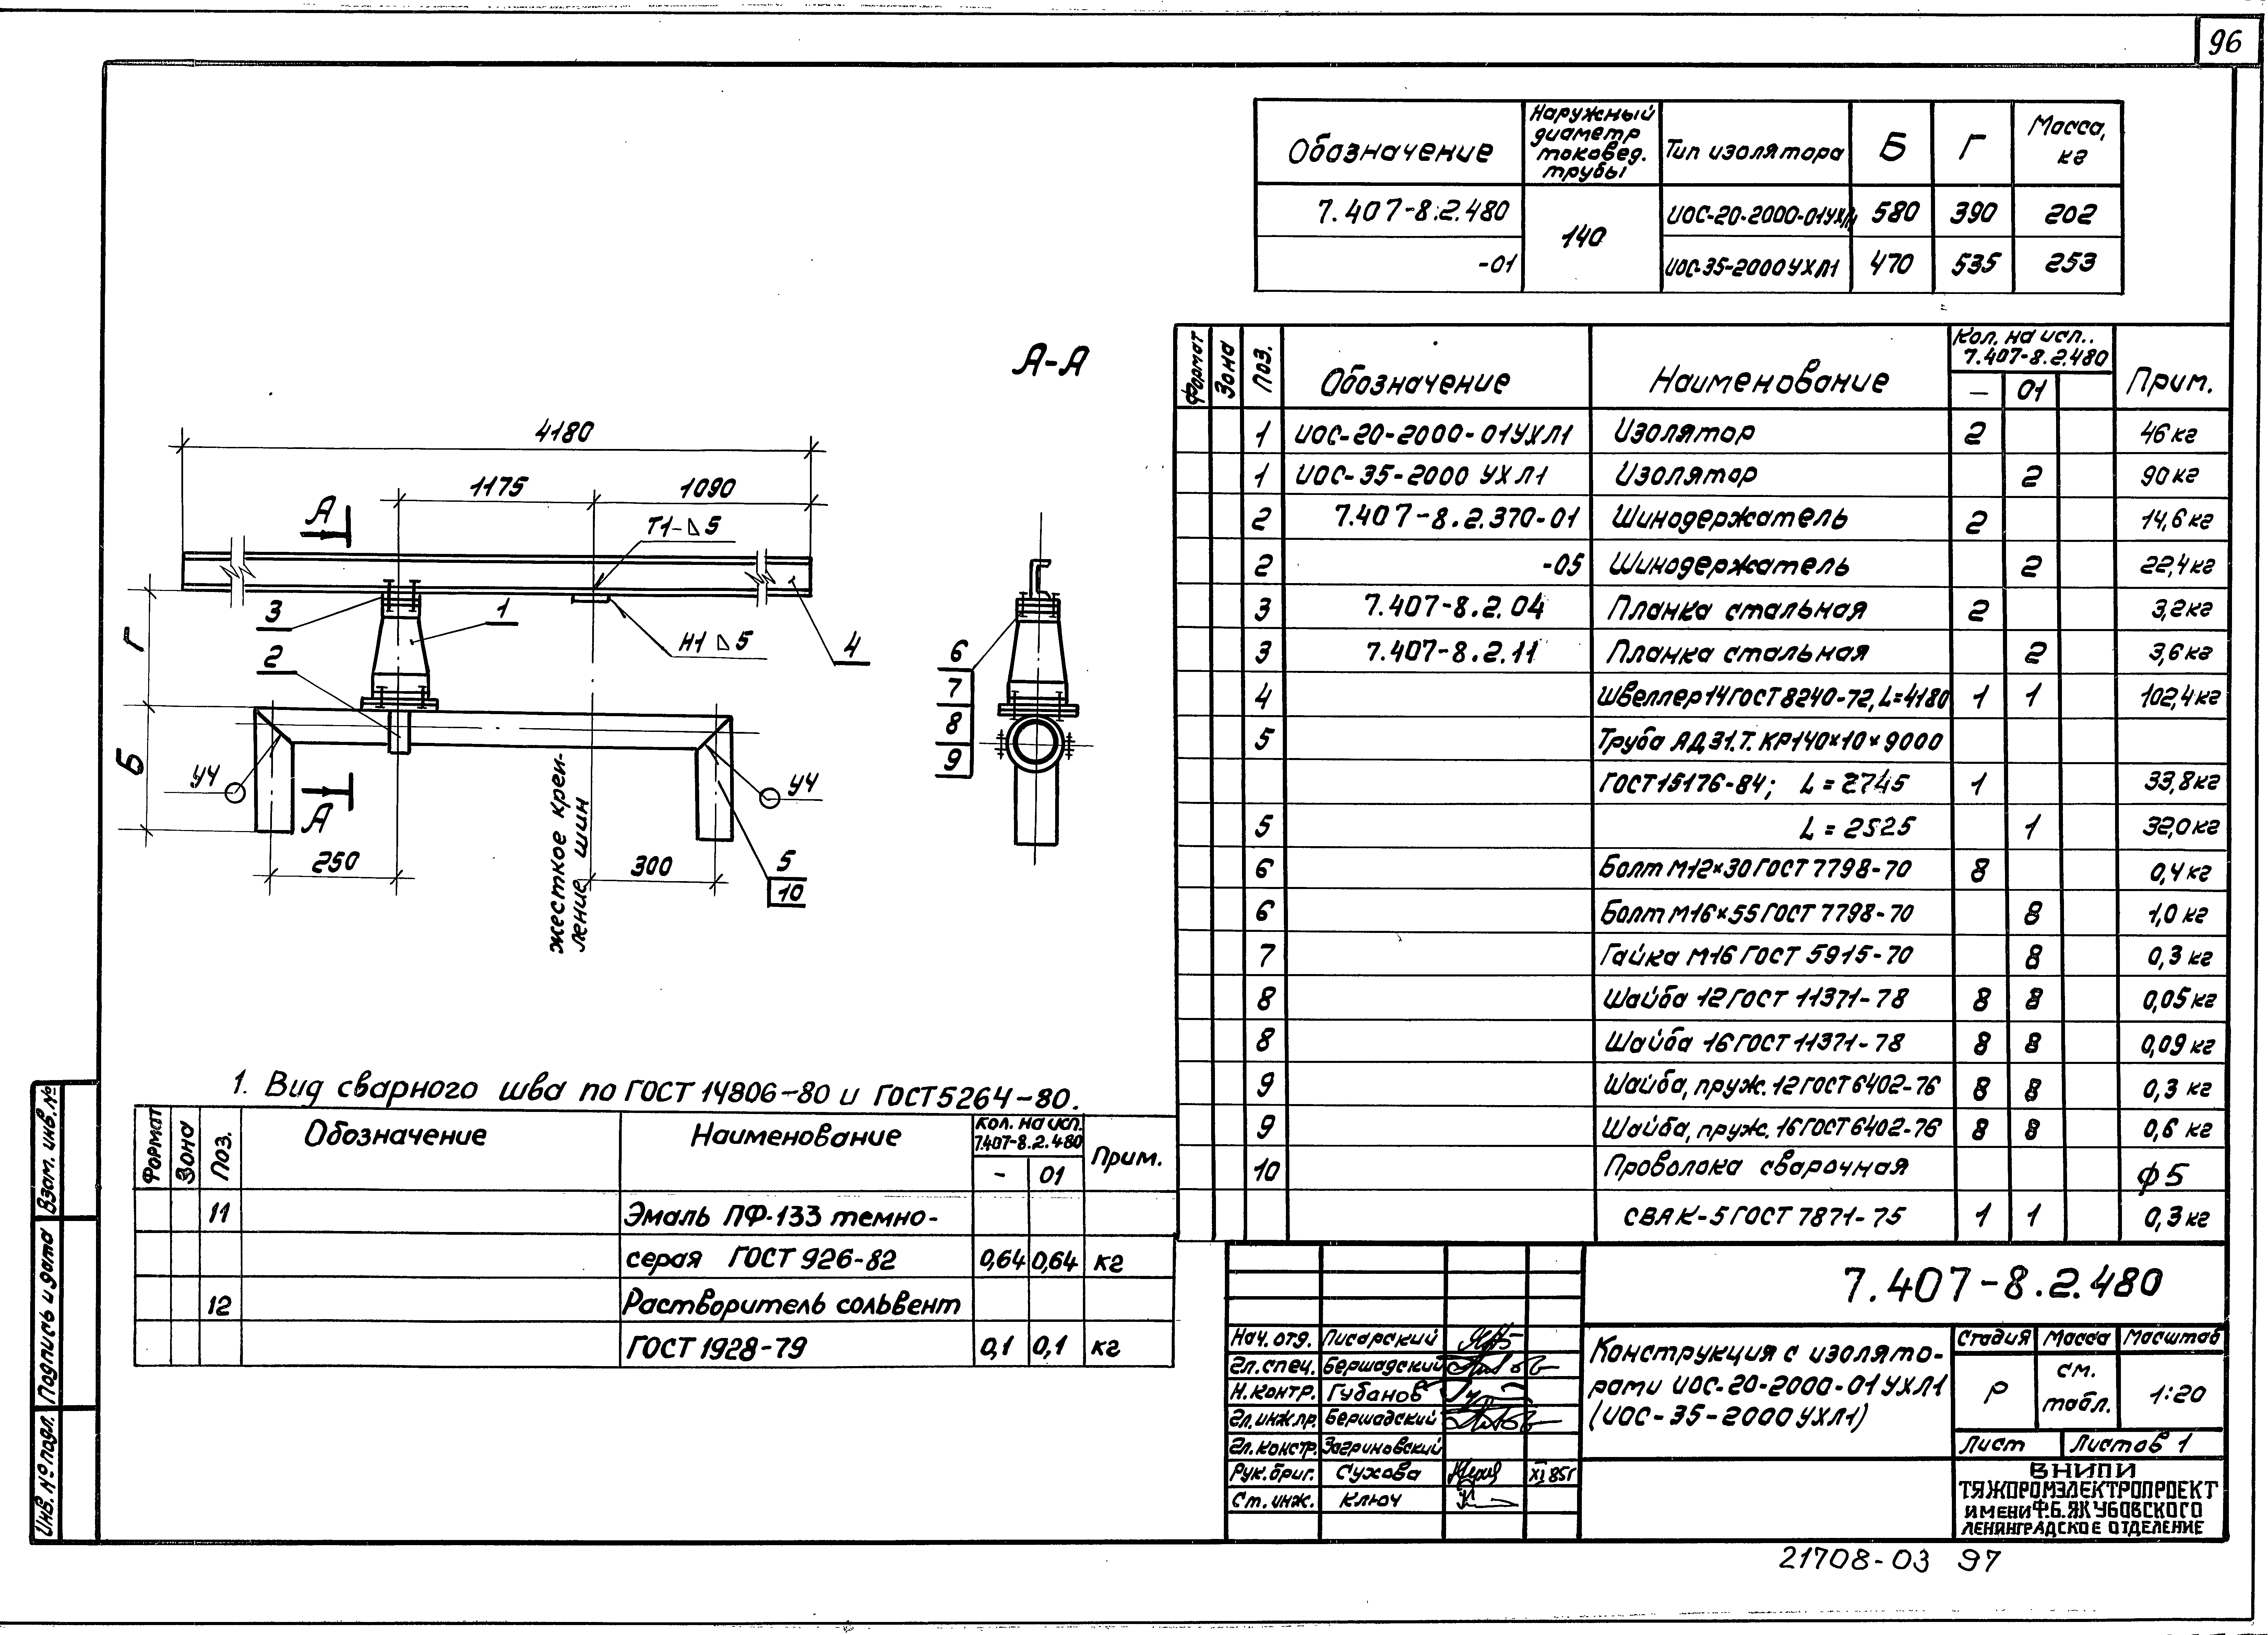 96
Обозначение Наружный диаметр токовед. трубы Тип изолятора Б Г Масса, кг
7.407-8.2.480 140 ИОС-20-2000-01УХЛ1 580 390 202
-01 ИОС-35-2000УХЛ1 470 535 253
А-А
4180
1175 1090
А
Т1-△5
3 1
Н1 △5
2 4
Г
Б
У4 У4
А
250 300
5
10
жесткое креп-
ление шин
6
7
8
9
Формат Зона Поз. Обозначение Наименование Кол. на исп. 7.407-8.2.480 Прим.
— 01
1 ИОС-20-2000-01УХЛ1 Изолятор 2 46 кг
1 ИОС-35-2000 УХЛ1 Изолятор 2 90 кг
2 7.407-8.2.370-01 Шинодержатель 2 14,6 кг
2 -05 Шинодержатель 2 22,4 кг
3 7.407-8.2.04 Планка стальная 2 3,2 кг
3 7.407-8.2.11 Планка стальная 2 3,6 кг
4 Швеллер 14 ГОСТ 8240-72, L=4180 1 1 102,4 кг
5 Труба АД31.Т.КР140×10×9000
ГОСТ 15176-84; L = 2745 1 33,8 кг
5 L = 2525 1 32,0 кг
6 Болт М12×30 ГОСТ 7798-70 8 0,4 кг
6 Болт М16×55 ГОСТ 7798-70 8 1,0 кг
7 Гайка М16 ГОСТ 5915-70 8 0,3 кг
8 Шайба 12 ГОСТ 11371-78 8 8 0,05 кг
8 Шайба 16 ГОСТ 11371-78 8 8 0,09 кг
9 Шайба, пруж. 12 ГОСТ 6402-76 8 8 0,3 кг
9 Шайба, пруж. 16 ГОСТ 6402-76 8 8 0,6 кг
10 Проволока сварочная ф5
СВАК-5 ГОСТ 7871-75 1 1 0,3 кг
1. Вид сварного шва по ГОСТ 14806-80 и ГОСТ 5264-80.
Формат Зона Поз. Обозначение Наименование Кол. на исп. 7.407-8.2.480 Прим.
- 01
11 Эмаль ПФ-133 темно-
серая ГОСТ 926-82 0,64 0,64 кг
12 Растворитель сольвент
ГОСТ 1928-79 0,1 0,1 кг
Взам. инв. №
Подпись и дата
Инв. № подл.
7.407-8.2.480
Нач. отд. Писарский
Гл. спец. Бершадский
Н. контр. Губанов
Гл. инж. пр. Бершадский
Гл. констр. Загриновский
Рук. бриг. Сухова XI 85г
Ст. инж. Ключ
Конструкция с изолято-
рами ИОС-20-2000-01УХЛ1
(ИОС-35-2000УХЛ1)
Стадия Масса Масштаб
Р см. табл. 1:20
Лист Листов 1
ВНИПИ
ТЯЖПРОМЭЛЕКТРОПРОЕКТ
ИМЕНИ Ф.Б. ЯКУБОВСКОГО
ЛЕНИНГРАДСКОЕ ОТДЕЛЕНИЕ
21708-03 97